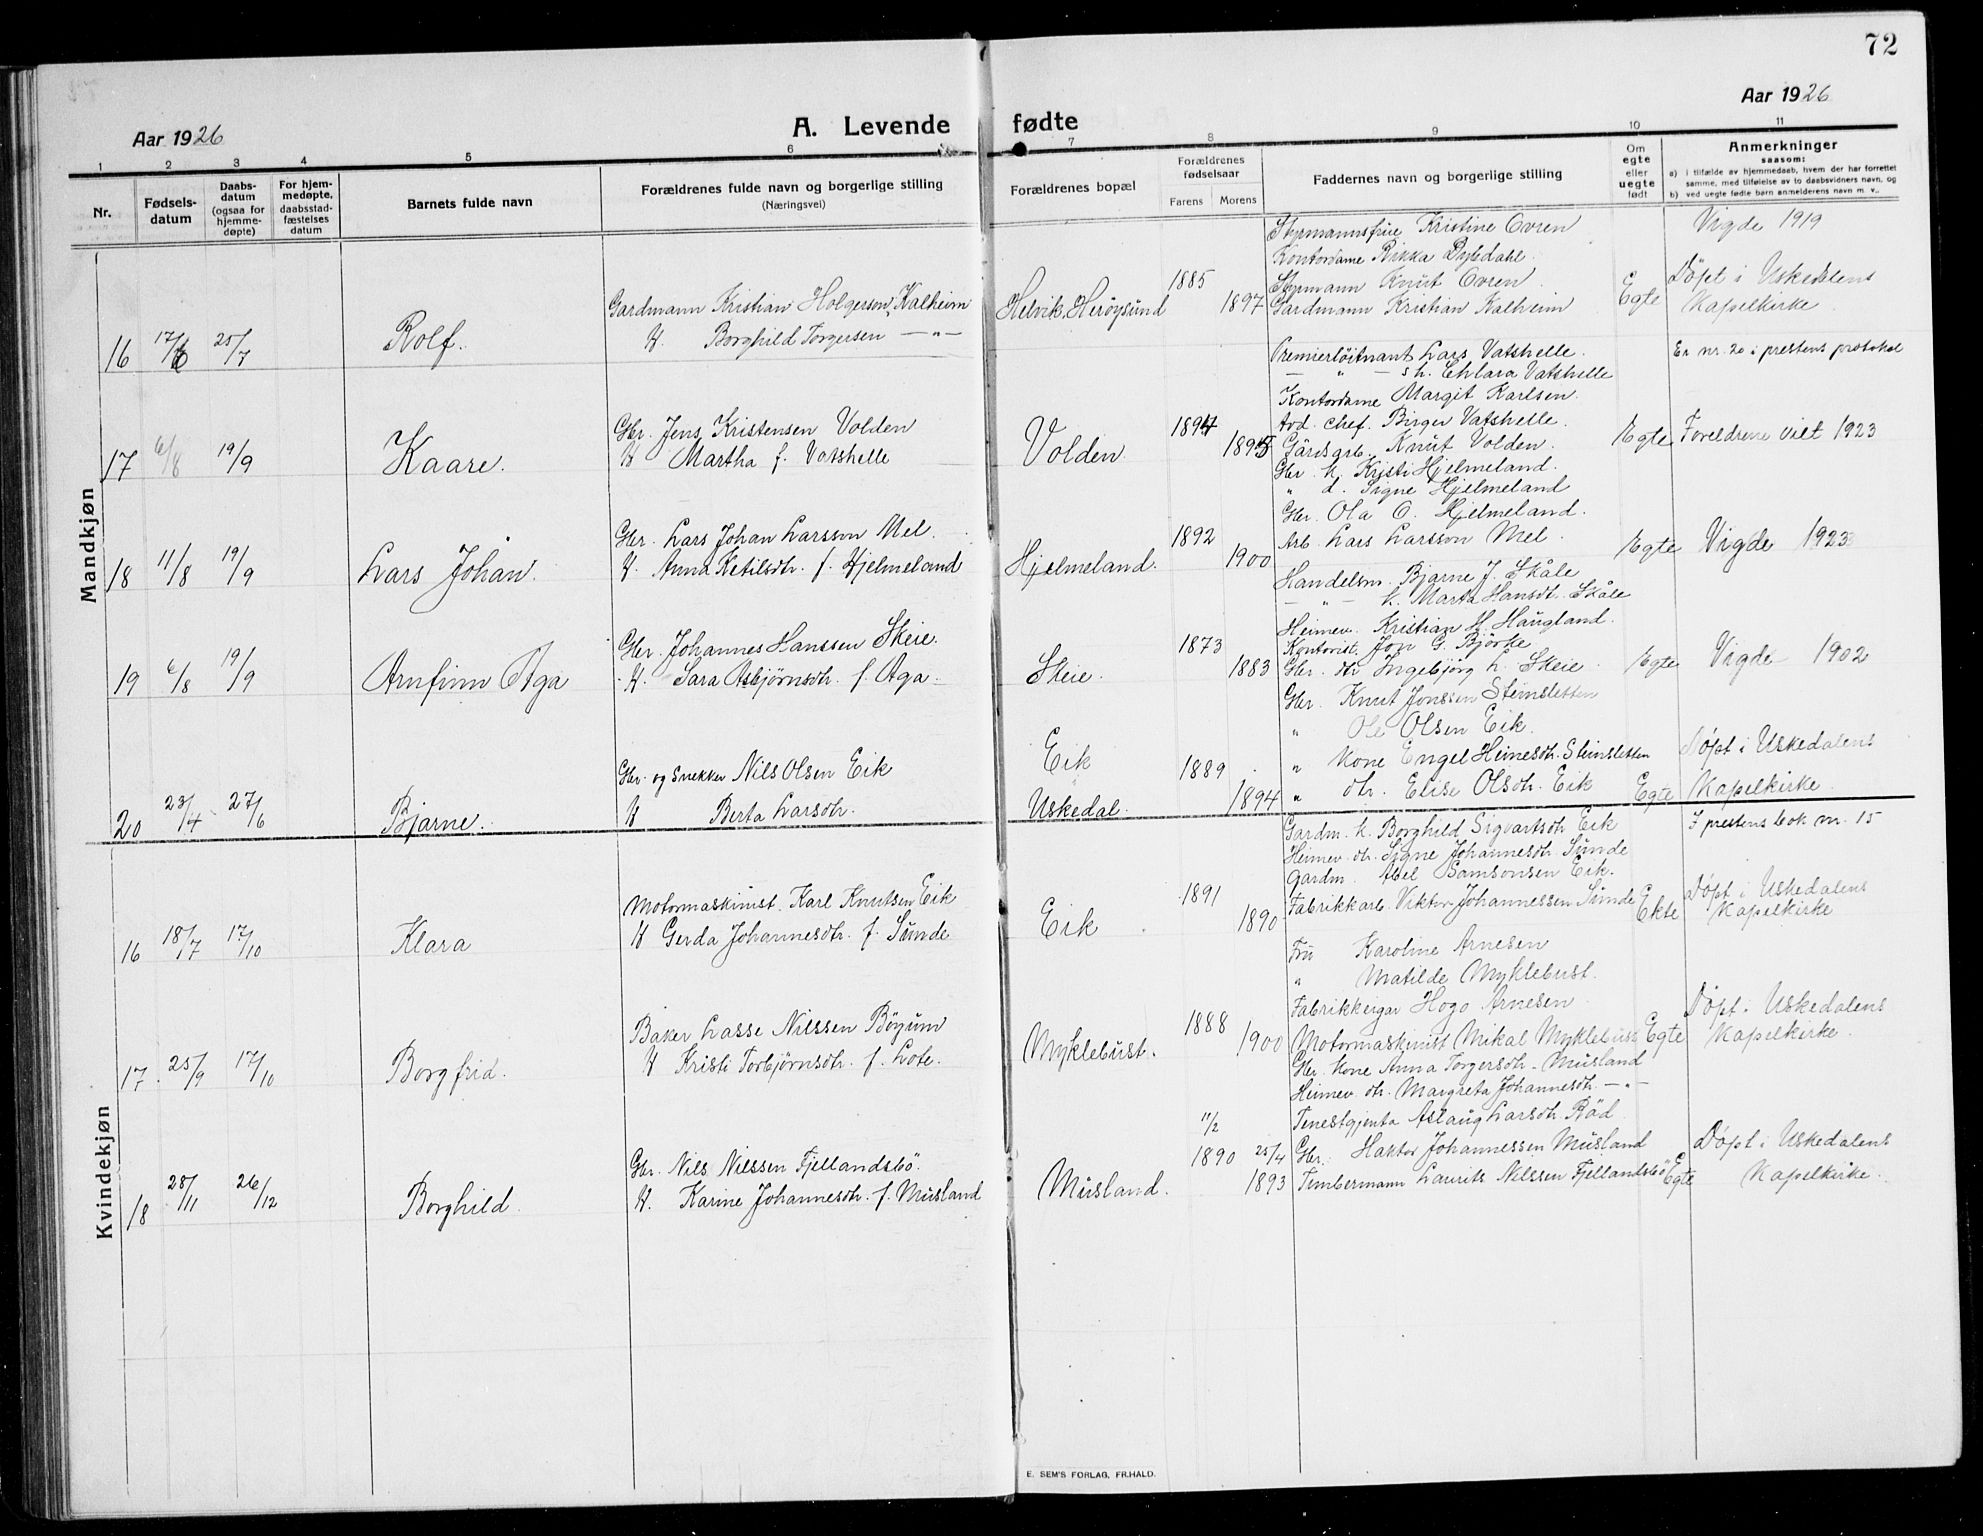 72
Aar 1926
A. Levende fødte
Aar 1926
1 2 3 4 5 6 7 8 9 10 11
Nr.
Fødsels-
datum
Daabs-
datum
(ogsaa for
hjemme-
døpte)
For hjem-
medøpte,
daabsstad-
fæstelses
datum
Barnets fulde navn
Forældrenes fulde navn og borgerlige stilling
(Næringsvei)
Forældrenes bopæl
Forældrenes
fødselsaar
Farens Morens
Faddernes navn og borgerlige stilling
Om
egte
eller
uegte
født
Anmerkninger
saasom:
a) i tilfælde av hjemmedaab, hvem der har forrettet
samme, med tilføielse av to daabsvidners navn, og
b) ved uegte fødte barn anmelderens navn m. v..
Mandkjøn
16 17/6 25/7 Rolf.
Gardmann Kristian Holgerson Kalheim
K Borghild Torgersen — " —
Helvik, Herøysund
1885
1897
Styrmannsfrue Kristine Ovren
Kontordame Rikka Dybdahl.
Styrmann Knut Ovren
Gardmann Kristian Kalheim
Egte
Vigde 1919
Döpt i Uskedalens
Kapelkirke
Er nr. 20 i prestens protokol
17 6/8 19/9 Kaare.
Gbr. Jens Kristensen Volden
K Martha f. Vatshelle
Volden
1894
1895
Premierløitnant Lars Vatshelle.
— " — s h. Ehlara Vatshelle
Kontordame Margit Karlsen.
Avd. chef. Birger Vatshelle.
Gårdsarb. Knut Volden.
Egte
Foreldrene viet 1923
18 11/8 19/9 Lars Johan.
Gbr. Lars Johan Larsson Mel.
K. Anna Ketilsdtr. f. Hjelmeland
Hjelmeland.
1892
1900
Gbr. k. Kristi Hjelmeland.
" d. Signe Hjelmeland
Gbr. Ola O. Hjelmeland.
Arb. Lars Larsson Mel.
Egte
Vigde 1923
19 6/8 19/9 Arnfinn Aga
Gbr. Johannes Hanssen Skeie.
K. Sara Asbjørnsdtr. f. Aga.
Skeie.
1873
1883
Handelsm. Bjarne J. Skåle
— " — k. Marta Hansdtr. Skåle
Heimev. Kristian H. Haugland.
Kontorist. Jon G. Björke
Gbr. dtr Ingebjörg L. Skeie.
Egte
Vigde 1902
20 23/4 27/6 Bjarne.
Gbr. og Snekker Nils Olsen Eik
K Berta Larsdtr.
Eik
"
Uskedal.
1889
1894
Gbr. Knut Jonssen Steinsletten
" Ole Olsen Eik.
" Kone Engel Heinesdtr. Steinsletten
" dtr. Elise Olsdtr. Eik
Egte
Döpt i Uskedalens
Kapelkirke.
I prestens bok nr. 15
Kvindekjøn
16 18/7 17/10 Klara
Motormaskinist. Karl Knutsen Eik
K Gerda Johannesdtr. f. Sunde
Eik
1891
1890
Gardm. k. Borghild Sigvartsdtr Eik
Heimev. dtr. Signe Johannesdtr. Sunde
Gardm. Abel Samsonsen Eik.
Fabrikkarb. Viktor Johannessen Sunde
Ekte
Döpt i Uskedalens
Kapelkirke
17. 25/9 17/10 Borgfrid.
Baker Lasse Nilssen Böyum
K Kristi Torbjørnsdtr. f. Lote.
Myklebust.
1888
1900
Fru Karoline Arnesen
" Matilde Myklebust.
Fabrikkeigar Hogo Arnesen
Motormaskinist Mikal Myklebust
Egte
Döpt i Uskedalens
Kapelkirke.
18 28/11 26/12 Borghild.
Gbr. Nils Nilssen Fjellandsbö.
K. Karine Johannesdtr. f. Musland
Musland.
11/2
1890
25/4
1893
Gbr. Kone Anna Torgersdtr. Musland
Heimev. dtr. Margreta Johannesdtr. — " —
Tenestgjenta Aslaug Larsdtr. Röd
Gbr. Haktor Johannessen Musland
Timbermann Laurits Nilssen Fjellandsbö
Egte
Döpt i Uskedalens
Kapelkirke.
E. SEM'S FORLAG, FR.HALD.